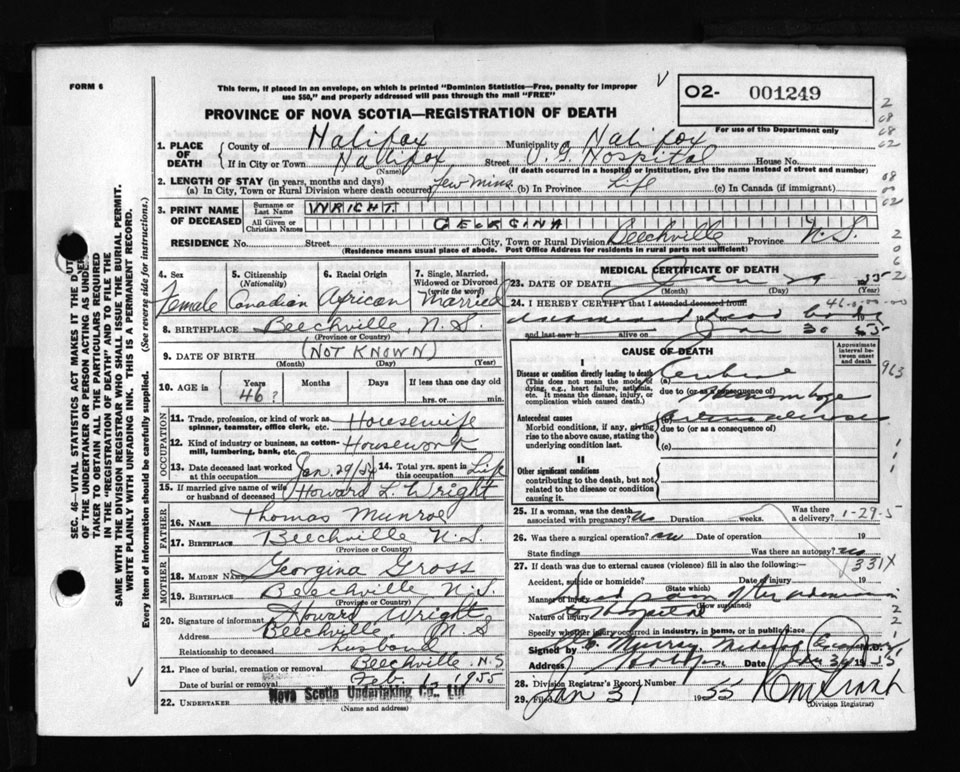 FORM 6
This form, if placed in an envelope, on which is printed "Dominion Statistics—Free, penalty for improper
use $50," and properly addressed will pass through the mail "FREE"
PROVINCE OF NOVA SCOTIA—REGISTRATION OF DEATH
O2- 001249
For use of the Department only
1. PLACE OF DEATH
County of Halifax Municipality Halifax
If in City or Town Halifax Street V. G. Hospital House No.
(Name) (If death occurred in a hospital or institution, give the name instead of street and number)
2. LENGTH OF STAY (in years, months and days)
(a) In City, Town or Rural Division where death occurred few mins. (b) In Province Life (c) In Canada (if immigrant)
3. PRINT NAME OF DECEASED
Surname or Last Name WRIGHT
All Given or Christian Names GEORGINA
RESIDENCE No. Street City, Town or Rural Division Beechville Province N.S.
(Residence means usual place of abode. Post Office Address for residents in rural parts not sufficient)
4. Sex Female
5. Citizenship (Nationality) Canadian
6. Racial Origin African
7. Single, Married, Widowed or Divorced (write the word) Married
8. BIRTHPLACE Beechville, N.S.
(Province or Country)
9. DATE OF BIRTH (NOT KNOWN)
(Month) (Day) (Year)
10. AGE in Years Months Days If less than one day old
46? hrs. or min.
OCCUPATION
11. Trade, profession, or kind of work as spinner, teamster, office clerk, etc. Housewife
12. Kind of industry or business, as cotton-mill, lumbering, bank, etc. Housework
13. Date deceased last worked at this occupation Jan. 29/55 14. Total yrs. spent in this occupation Life
15. If married give name of wife or husband of deceased Howard L. Wright
FATHER
16. NAME Thomas Munroe
17. BIRTHPLACE Beechville N.S.
(Province or Country)
MOTHER
18. MAIDEN NAME Georgina Gross
19. BIRTHPLACE Beechville N.S.
(Province or Country)
20. Signature of informant Howard Wright
Address Beechville N.S
Relationship to deceased husband
21. Place of burial, cremation or removal Beechville N.S
Date of burial or removal Feb. 1, 1955
22. UNDERTAKER Nova Scotia Undertaking Co., Ltd
(Name and address)
MEDICAL CERTIFICATE OF DEATH
23. DATE OF DEATH Jan 29 1955
(Month) (Day) (Year)
24. I HEREBY CERTIFY that I attended deceased from
46-0-00-00
examined dead body
and last saw h alive on Jan 30 55
CAUSE OF DEATH
Approximate interval between onset and death
I
Disease or condition directly leading to death (a) Cerebral
(This does not mean the mode of dying, e.g., heart failure, asthenia, etc. It means the disease, injury, or complication which caused death.)
due to (or as a consequence of)
Antecedent causes (b)
Morbid conditions, if any, giving rise to the above cause, stating the underlying condition last.
due to (or as a consequence of)
(c)
II
Other significant conditions
contributing to the death, but not related to the disease or condition causing it.
25. If a woman, was the death associated with pregnancy? no Duration weeks. Was there a delivery?
1-29-5
26. Was there a surgical operation? no Date of operation 19
State findings Was there an autopsy? no
27. If death was due to external causes (violence) fill in also the following:— 331X
Accident, suicide or homicide? Date of injury 19
(State which)
Manner of injury
(How sustained)
Nature of injury to hospital
Specify whether injury occurred in industry, in home, or in public place
Signed by Murray Medical Examiner M.D.
Address Date Jan 30 1955
28. Division Registrar's Record Number
29. Filed Jan 31 1955
(Division Registrar)
SEC. 46—VITAL STATISTICS ACT MAKES IT THE DUTY
OF THE UNDERTAKER OR PERSON ACTING AS UNDER-
TAKER TO OBTAIN ALL THE PARTICULARS REQUIRED
IN THE "REGISTRATION OF DEATH" AND TO FILE THE
SAME WITH THE DIVISION REGISTRAR WHO SHALL ISSUE THE BURIAL PERMIT.
WRITE PLAINLY WITH UNFADING INK. THIS IS A PERMANENT RECORD.
Every item of information should be carefully supplied. (See reverse side for instructions.)